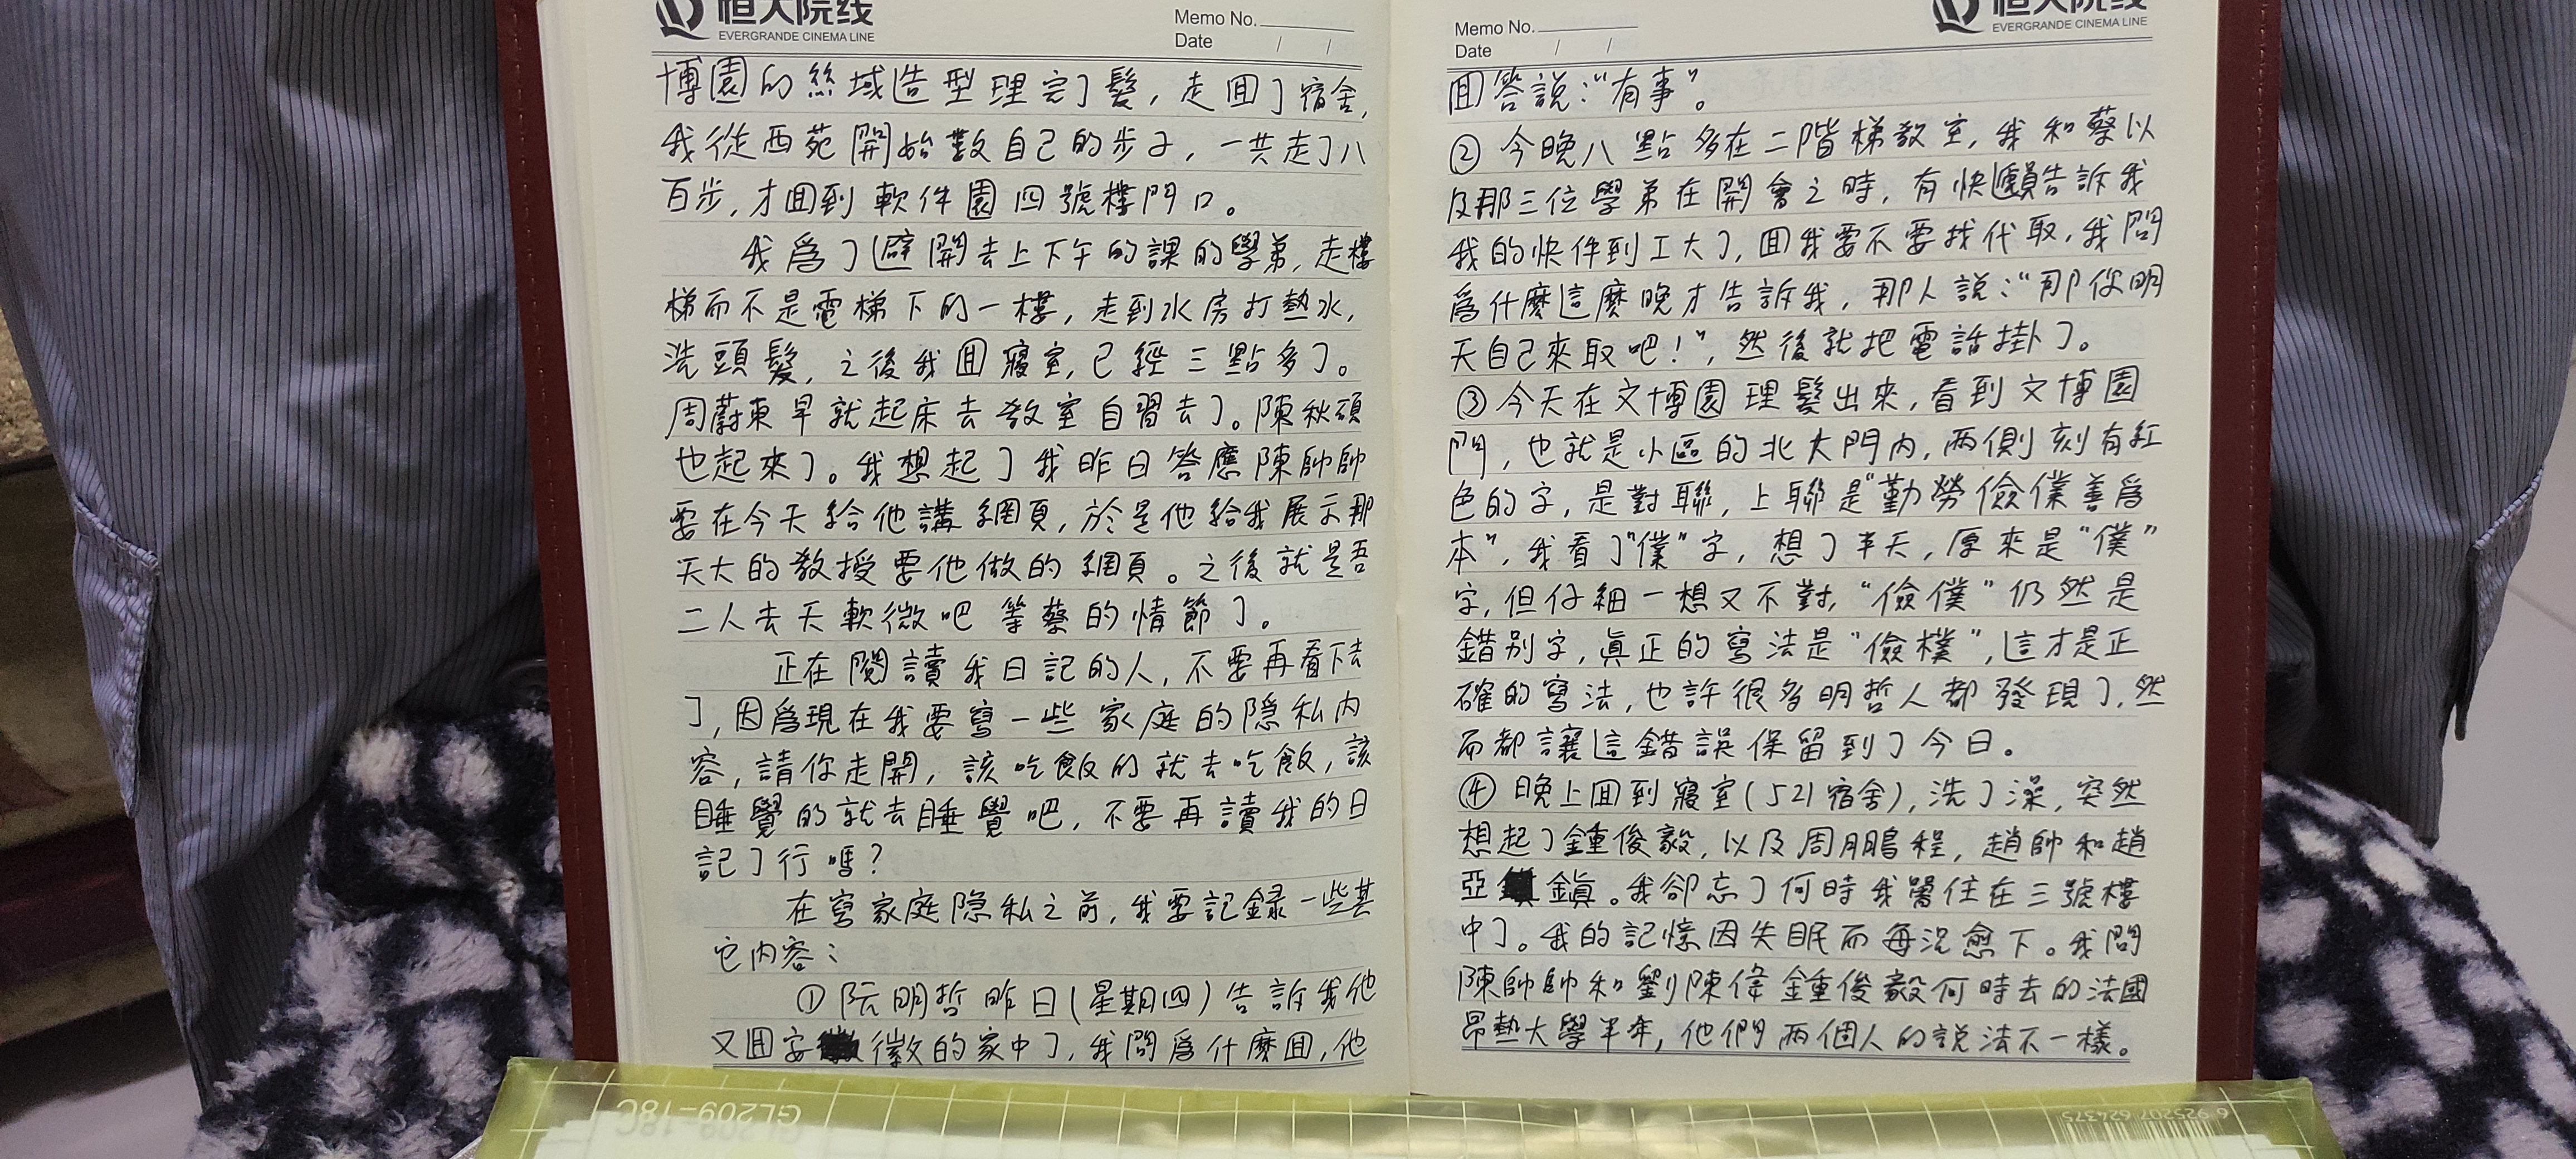 恒大院线
EVERGRANDE CINEMA LINE
Memo No.
Date / /
博園的絲域造型理完了髮，走囬了宿舍，
我從西苑開始數自己的步子，一共走了八
百步，才囬到軟件園四號樓門口。
我爲了避開去上下午的課的學弟，走樓
梯而不是電梯下的一樓，走到水房打熱水，
洗頭髮，之後我囬寢室，已經三點多了。
周蔚東早就起床去教室自習去了。陳秋碩
也起來了。我想起了我昨日答應陳帥帥
要在今天給他講網頁，於是他給我展示那
天大的教授要他做的網頁。之後就是吾
二人去天軟微吧等蔡的情節了。
正在閱讀我日記的人，不要再看下去
了，因爲現在我要寫一些家庭的隱私内
容，請你走開，該吃飯的就去吃飯，該
睡覺的就去睡覺吧，不要再讀我的日
記了行嗎？
在寫家庭隱私之前，我要記録一些其
它内容：
①阮明哲昨日（星期四）告訴我他
又囬安徽的家中了，我問爲什麽囬，他
恒大院线
EVERGRANDE CINEMA LINE
Memo No.
Date / /
囬答説：“有事”。
②今晚八點多在二階梯教室，我和蔡以
及那三位學弟在開會之時，有快遞員告訴我
我的快件到工大了，囬我要不要找代取，我問
爲什麽這麽晚才告訴我，那人説：“那你明
天自己來取吧！”，然後就把電話掛了。
③今天在文博園理髮出來，看到文博園
門，也就是小區的北大門内，兩側刻有紅
色的字，是對聯，上聯是“勤勞儉僕善爲
本”，我看了“僕”字，想了半天，原來是“僕”
字，但仔細一想又不對，“儉僕”仍然是
錯别字，真正的寫法是“儉樸”，這才是正
確的寫法，也許很多明哲人都發現了，然
而都讓這錯誤保留到了今日。
④晚上囬到寢室（521宿舍），洗了澡，突然
想起了鍾俊毅，以及周鵬程，趙帥和趙
亞鎮。我卻忘了何時我署住在三號樓
中了。我的記憶因失眠而每況愈下。我問
陳帥帥和劉陳偉鍾俊毅何時去的法國
昂熱大學半年，他們兩個人的説法不一樣。
GL209-18C
6 925207 624375